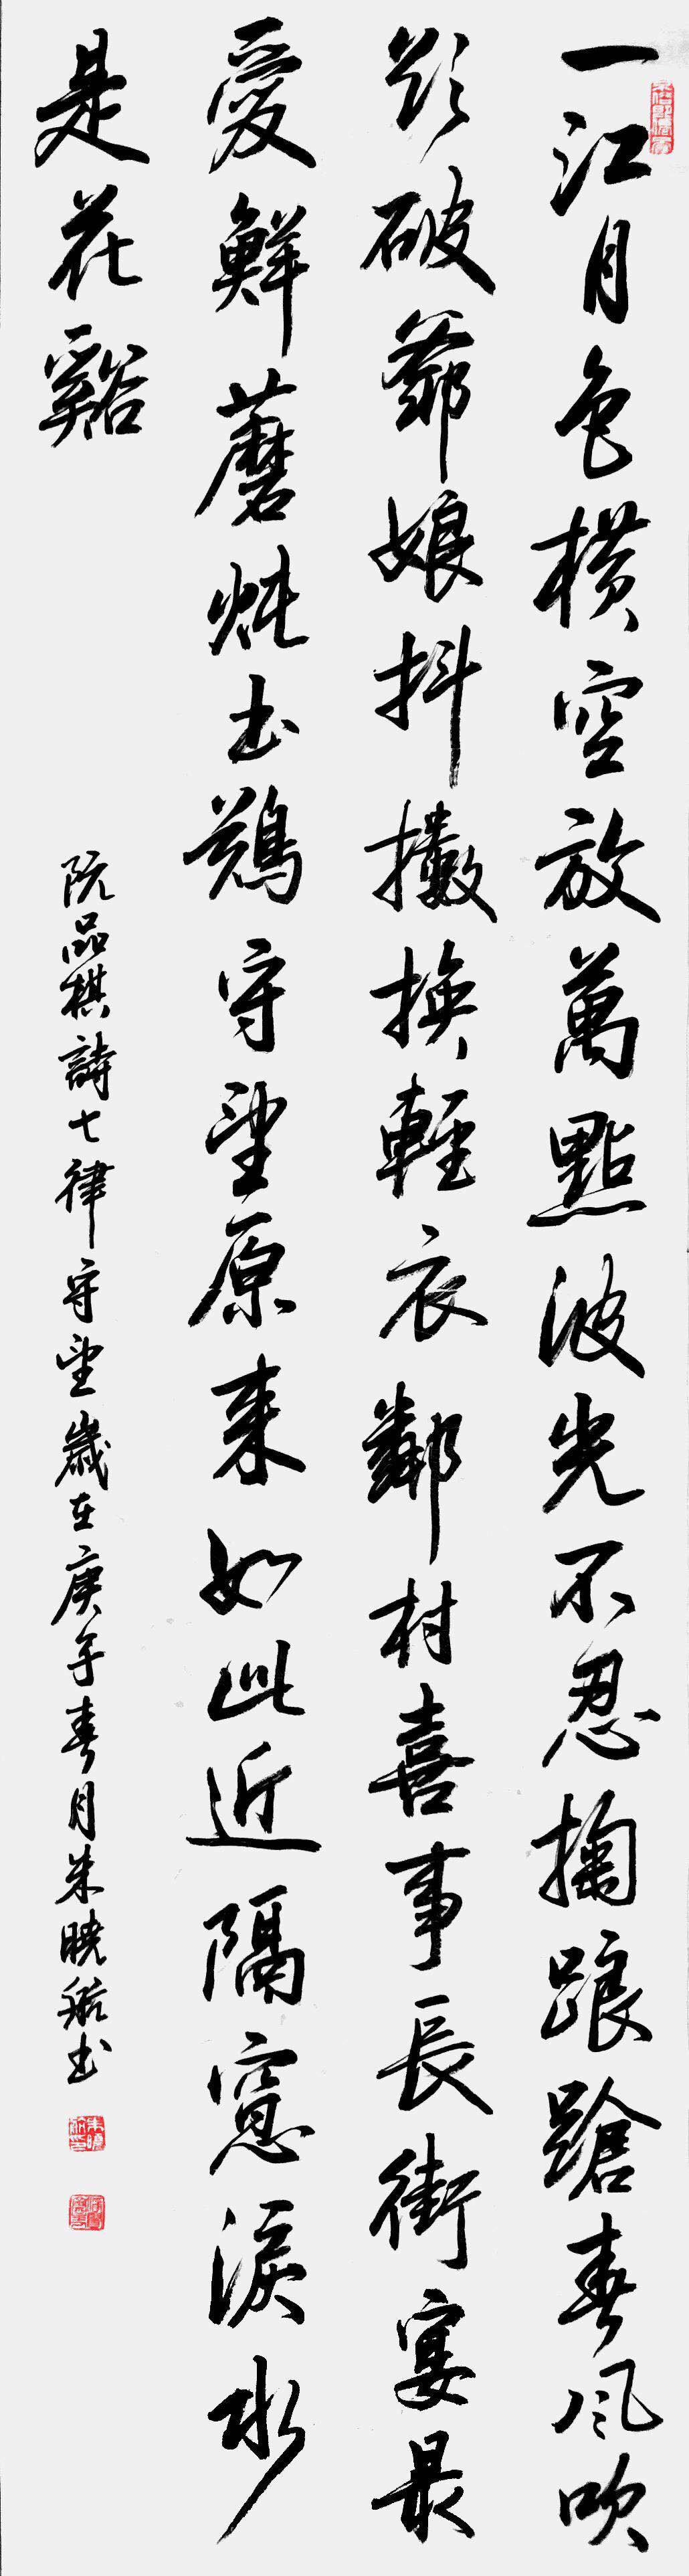 一江月色横空放萬點波光不忍掬踉蹌春風吹
欲破爺娘抖擻換輕衣鄰村喜事長街宴最
愛鮮蘑炖土鷄守望原來如此近隔窓淚水
是花谿
阮品棋詩七律守望歲在庚子春月朱曉書